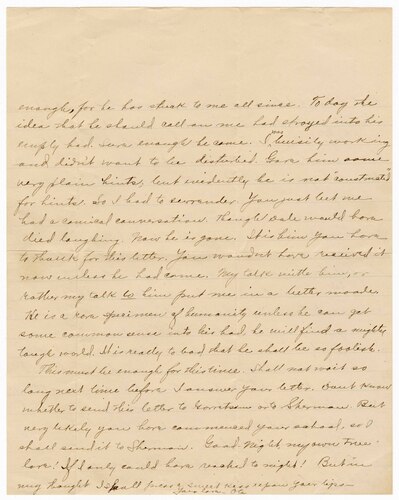 enough, for he has stuck to me all since. To day the
idea that he should call on me had strayed into his
empty had. sure enough he came. I was buisily working
and did'nt want to be disturbed. Gave him some
very plain hints, but evidently he is not "constructed"
for hints. So I had to surrender. You just bet we
had a comical conversation. thought Dale would have
died laughing. Now he is gone. It is him you have
to thank for this letter. You wouldn't have received it
now unless he had come. My talk with him, or
rather my talk to him put me in a better moode.
He is a rare specimen of humanity unless he can get
some common sense into his had, he will find a mighty
tough world. It is really to bad that he shall be so foolish.
This must be enough for this time. Shall not wait so
long next time before I answer your letter. Don't know
whether to send this letter to Garretson or to Sherman. But
very likely you have commensed your school, so I
shall send it to Sherman. Good Night, my own true
love! If I only could have reached to night! But in
my thought I shall press a sweet kiss upon your lips